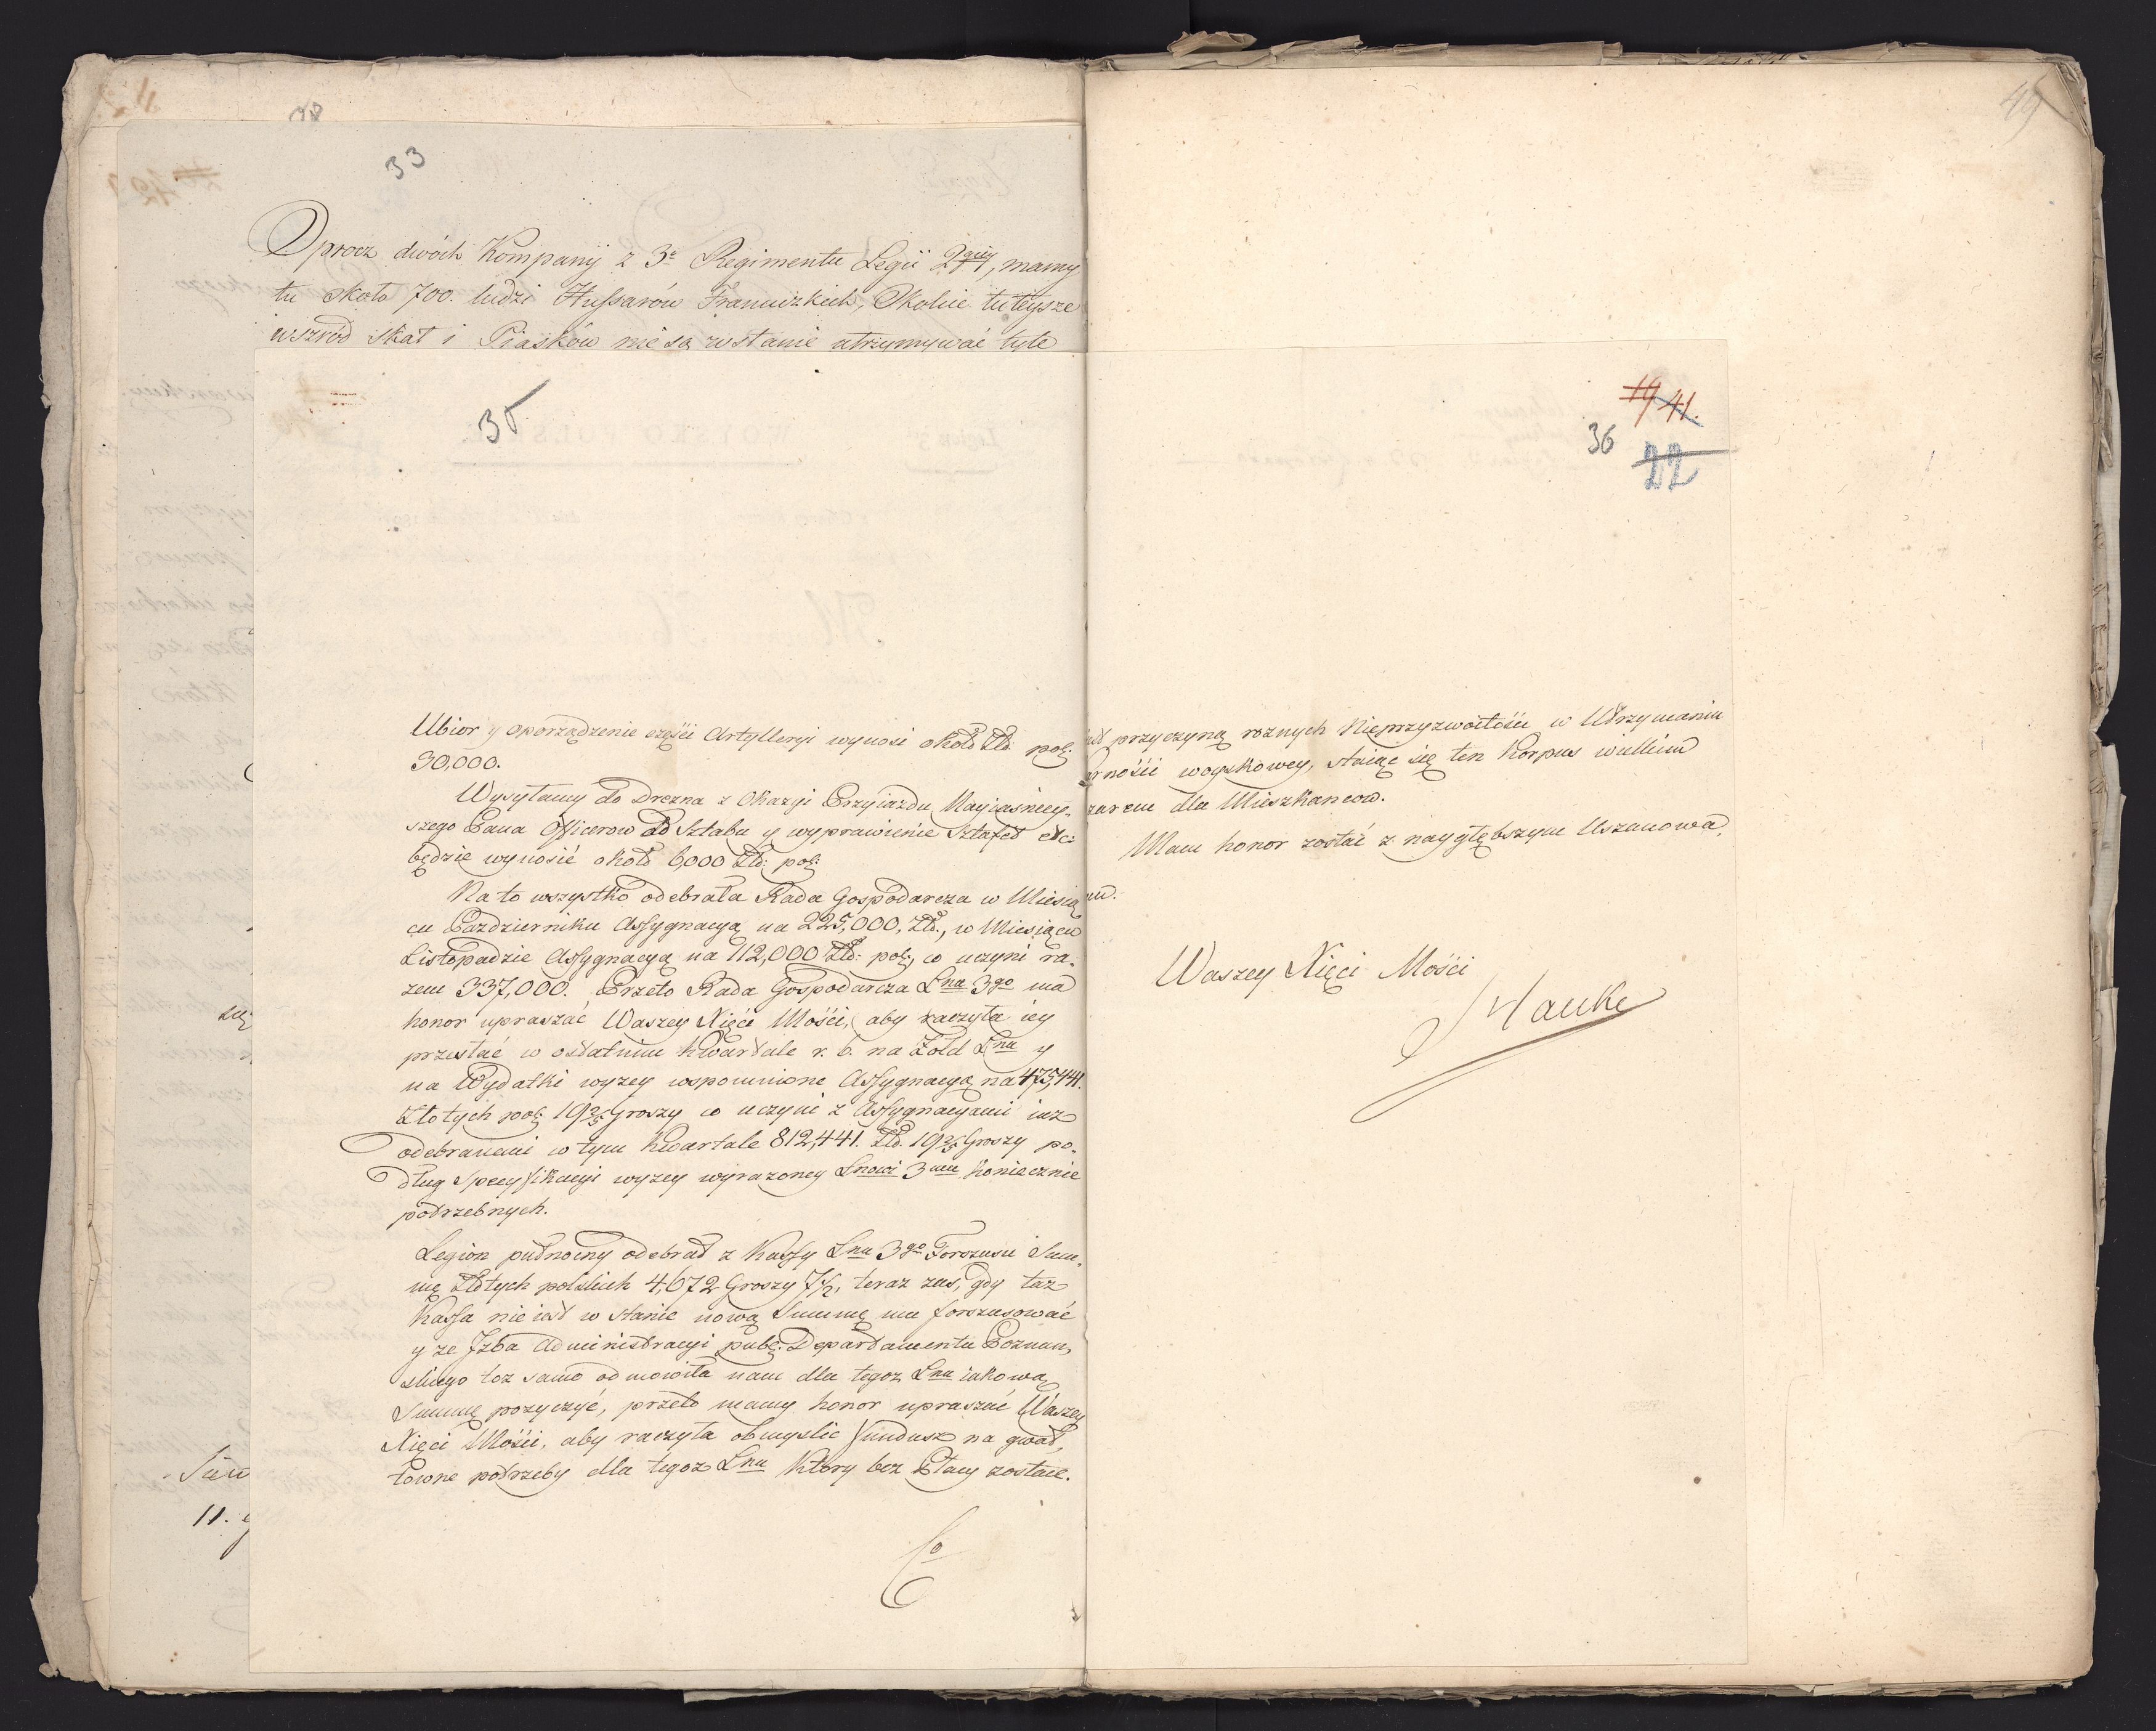 33
Oprocz dwóch Kompanij z 3e Regimentu Legii 2giey, mamy
tu około 700. ludzi Hussarów Francuzkich, Okolice tuteysze
wszród Skał i Piasków nie są wstanie utrzymywać tyle
35
Ubior y oporządzenie części Artylleryi wynosi około Zło: pol:
30,000.
Wysyłamy do Drezna z Okazyi Przyiazdu Nayiaśniey-
szego Pana Officerow do Sztabu y wyprawienie Sztafet etc:
będzie wynosić około 6,000 Zło: pol:
Na to wszystko odebrała Rada Gospodarcza w Miesią
cu Październiku Assygnacyą na 225,000, Zło., w Miesiącu
Listopadzie Assygnacyą na 112,000 Zło: pol:, co uczyni ra-
zem 337,000. Przeto Rada Gospodarcza Lna 3go ma
honor upraszać Waszey Xięci Mości, aby raczyła iey
przesłać w ostatnim Kwartale r. b. na Żołd Lnu y
na Wydatki wyzey wspomnione Assygnacyą na 475,441.
Złotych pol: 19 Groszy co uczyni z Assygnacyami iuz
odebranemi w tym Kwartale 812,441. Zło. 19 Groszy po-
dług Specyfikacyi wyzey wyrazoney Lnowi 3mu koniecznie
potrzebnych.
Legion pułnocny odebrał z Kassy Lnu 3go Forszusu Sum-
mę Złotych polskich 4,672 Groszy 7½, teraz zas, gdy taz
Kassa nie iest w stanie nową Summę mu forszusować
y ze Izba Administracyi publ: Departamentu Poznan-
skiego toz samo odmowiła nam dla tegoz Lnu iakową
Summę pozyczyć, przeto mamy honor upraszać Waszey
Xięci Mości, aby raczyła obmyslic fundusz na gwał-
towne potrzeby dla tegoz Lnu ktory bez Płacy zostaie.
Co
11.
49
19 41.
36
22
iest przyczyną roznych Nieprzyzwoitości w Utrzymaniu
rności woyskowey, staiąc się ten Korpus wielkim
zarem dla Mieszkancow.
Mam honor zostać z naygłębszym Uszanowa-
em.
Waszey Xięci Mości
Hauke